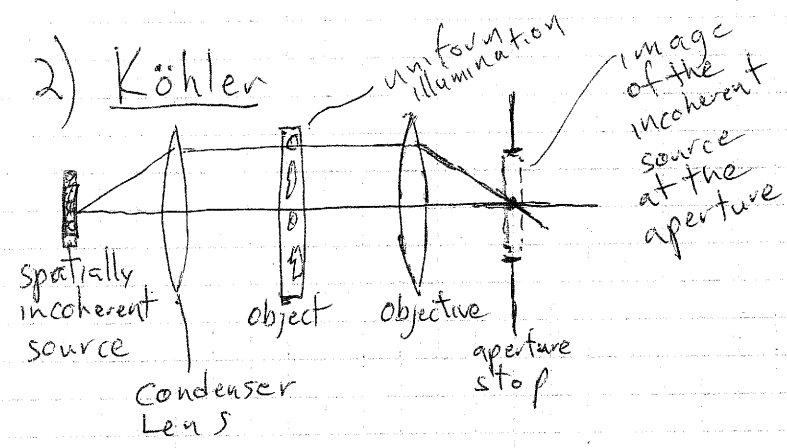 2) Köhler
uniform
illumination
image
of the
incoherent
source
at the
aperture
spatially
incoherent
source
condenser
Lens
object
objective
aperture
stop